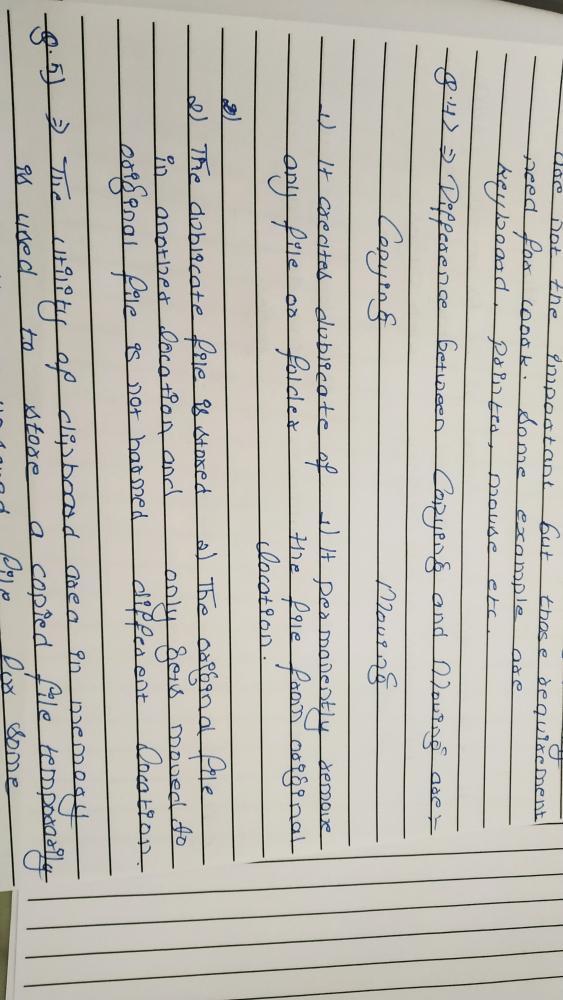 are not the important but those requirement
need for work. Some example are
keyboard, printer, mouse etc.
Q.4) ⇒ Difference between Copying and Moving are:-
Copying Moving
1) It creates dublicate of 1) It permanently remove
only file or folder the file from original
location.
2)
2) The dublicate file is stored 2) The original file
in another location and only gets moved to
original file is not harmed different location.
Q.5) ⇒ The utility of clipboard area in memory
is used to store a copied file temporarily
file for some